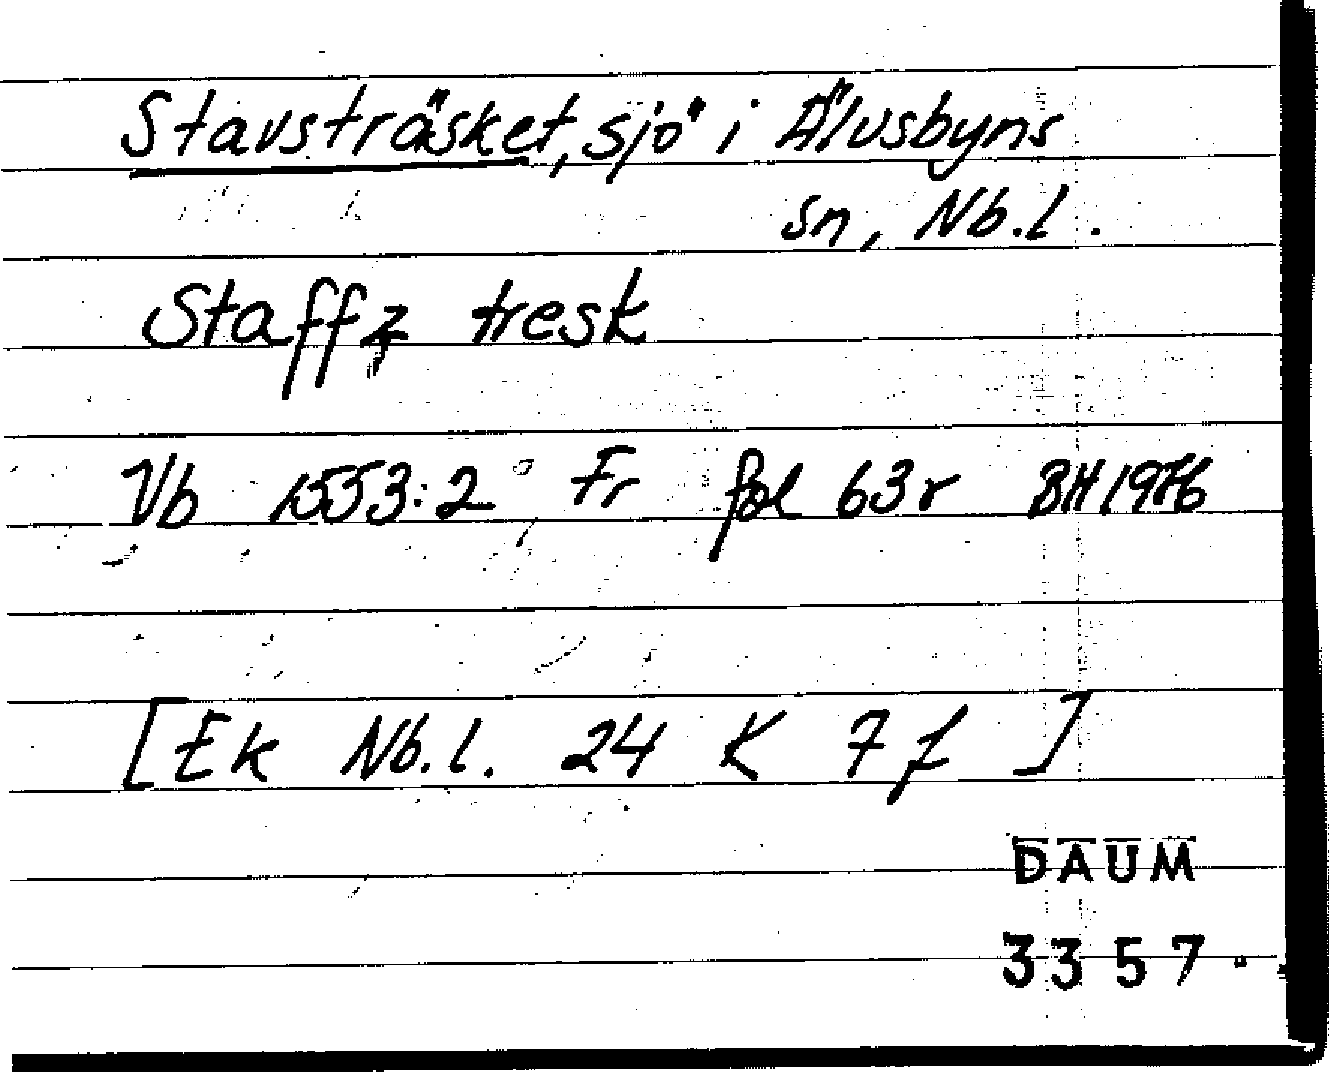 Stavsträsket, sjö i Älvsbyns
sn, Nb.l.
Staffz tresk
Vb 1553:2 Fr fol 63r BH 1976
[Ek Nb.l. 24 K 7 f ]
DAUM
3357